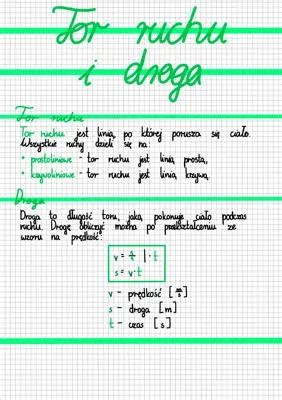 Tor ruchu
i droga
Tor ruchu
Tor ruchu jest linią, po której porusza się ciało.
Wszystkie ruchy dzieli się na:
• prostoliniowe - tor ruchu jest linią prostą,
• krzywoliniowe - tor ruchu jest linią krzywą,
Droga
Droga to długość toru, jaką pokonuje ciało podczas
ruchu. Drogę obliczyć można po przekształceniu ze
wzoru na prędkość:
v = s/t | · t
s = v · t
v - prędkość [m/s]
s - droga [m]
t - czas [s]